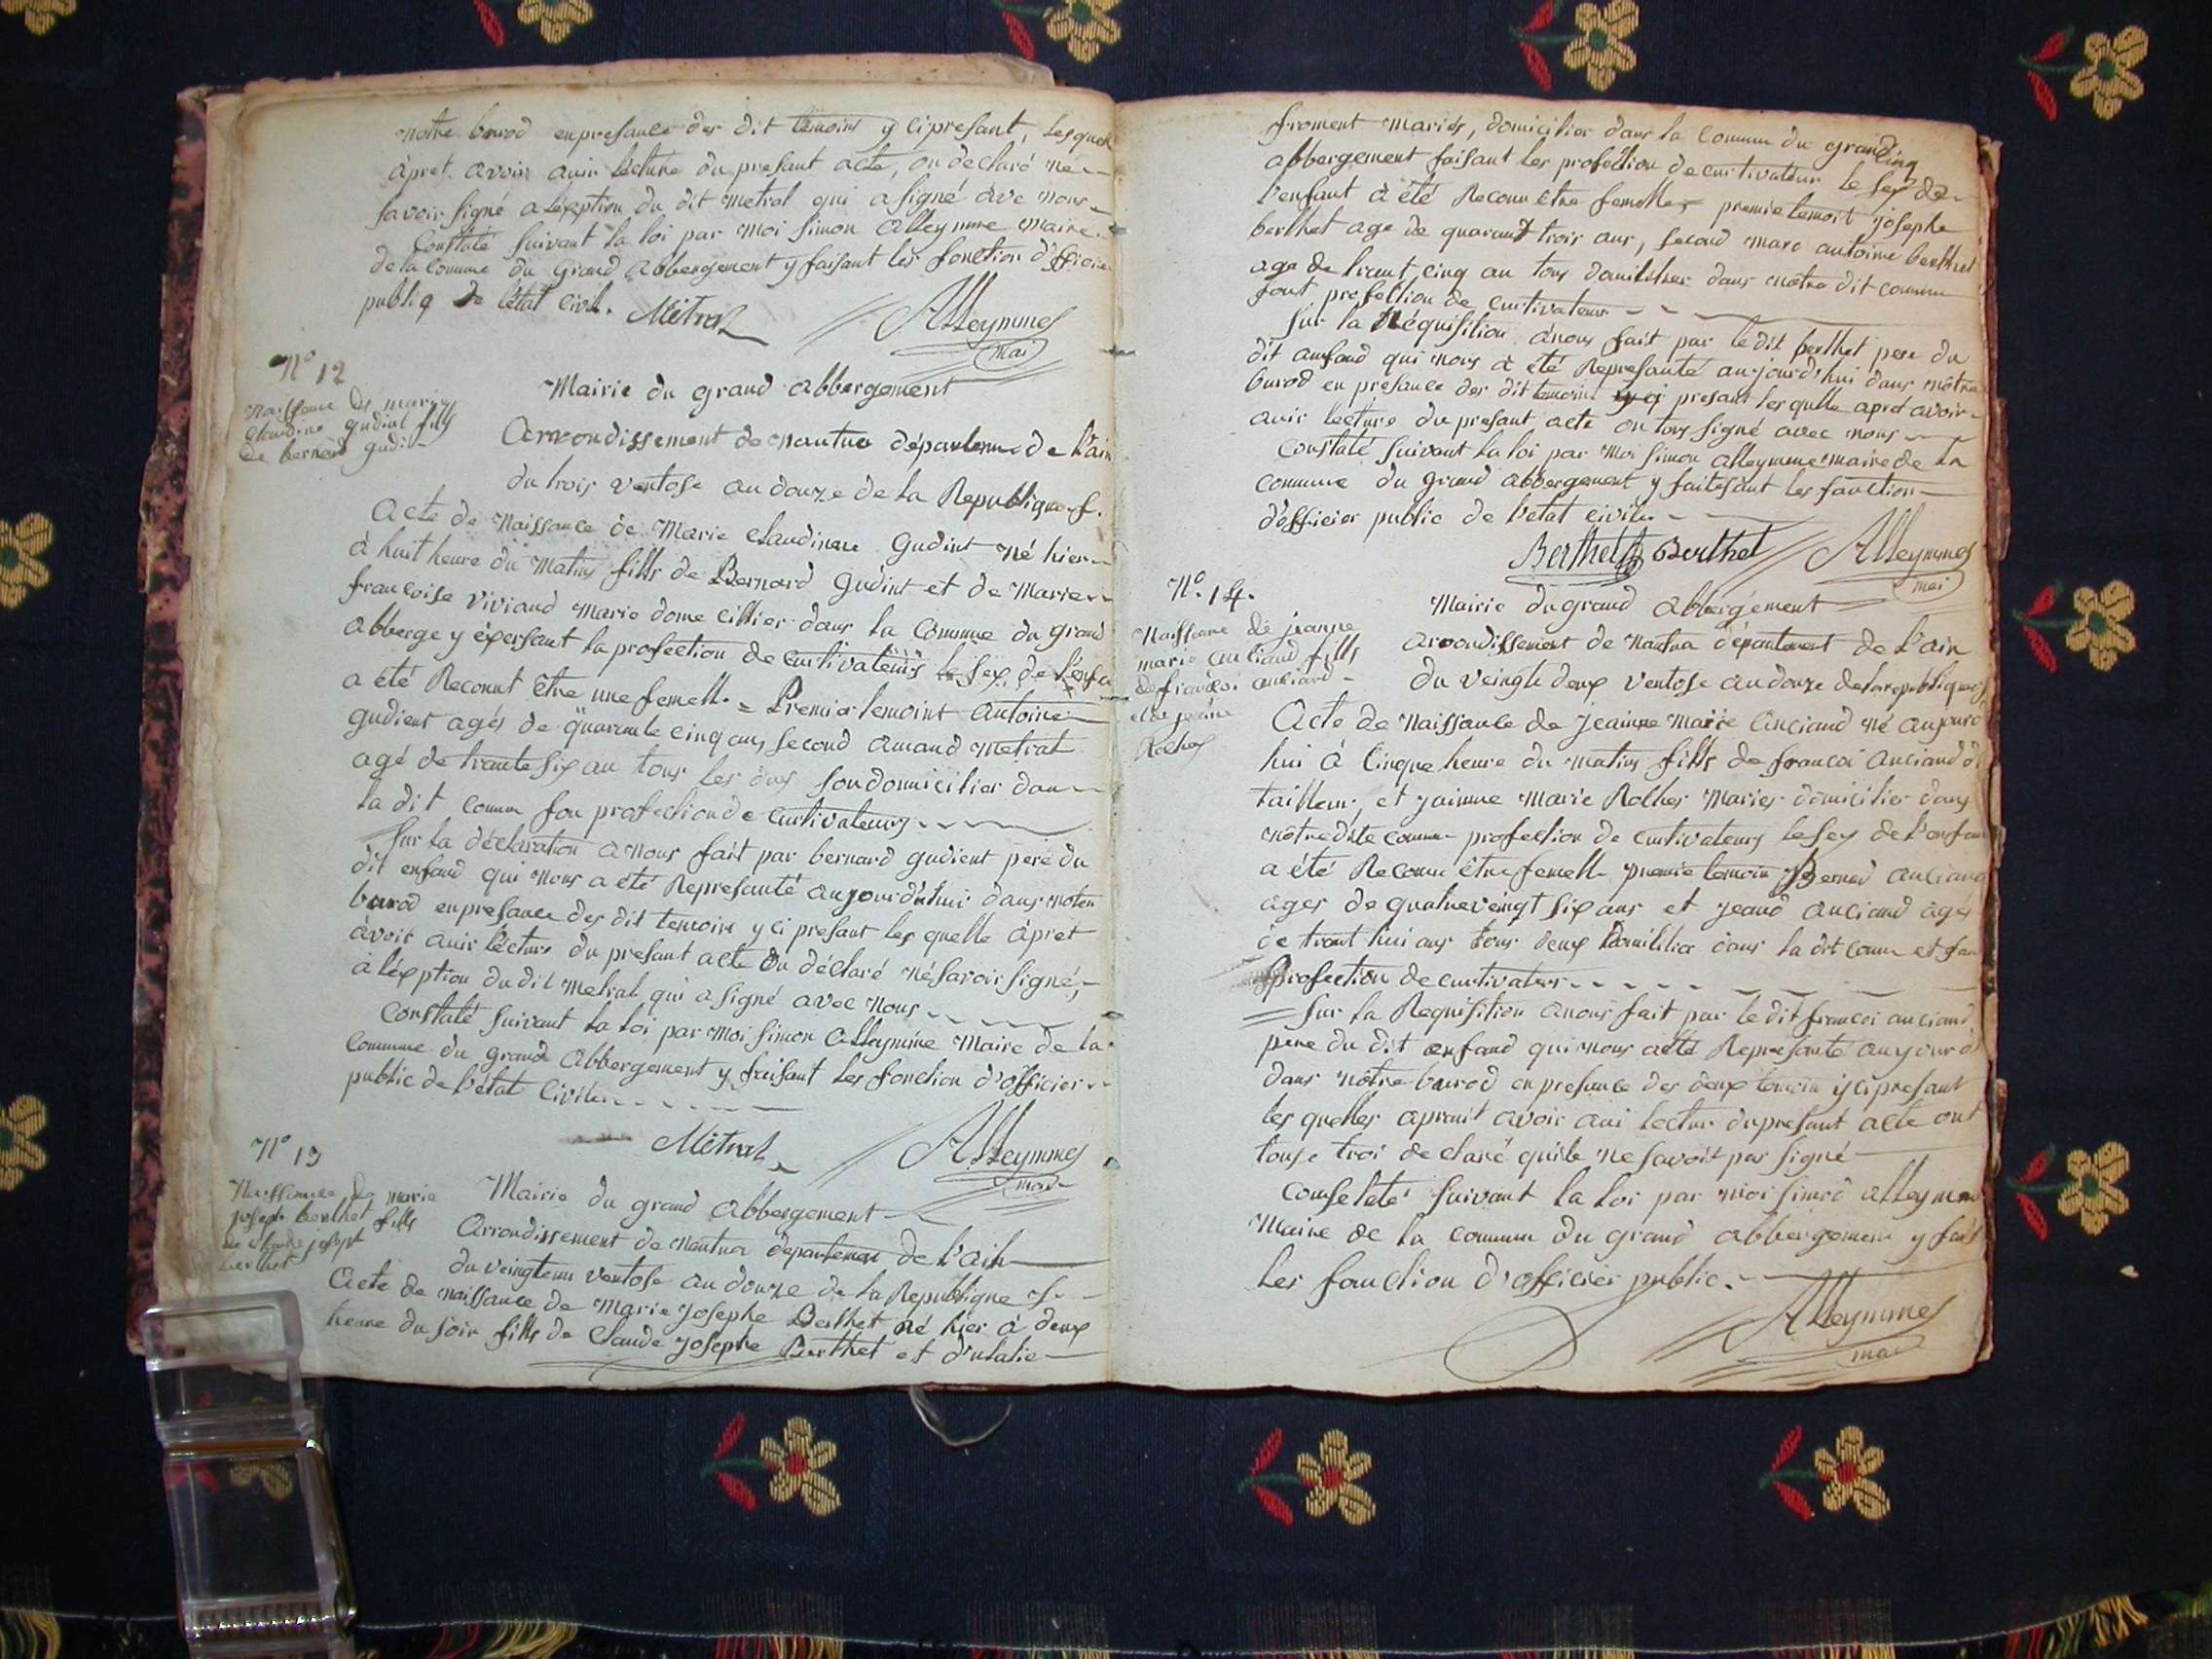 notre burod en presance des dit temoins y ci presant, lesquel
àpret avoir auir lecture du presant acte, on declaré ne
savoir signé a léxption du dit metral qui a signé ave nous
Constaté suivant la loi par moi simon alleymme maire
de la Comune du Grand abbergement y faisant les fonction d'officier
publiq de l'état Civil. Métral Alleymmes
mai
N° 12
Naissance de marie
claudine gudint fills
de bernard gudin
Mairie du grand abbergement
Arrondissement de nantua département de l'ain
du trois ventose an douze de la Republique f.
Acte de Naissance de Marie claudinne Gudint né hier
à huit heure du Matins fills de Bernard Gudint et de Marie
francoise Viviand Marie dome cillier dans la Commune du grand
abberge y éxersant la profection de Curtivateurs le sex de l'enfa
a été Reconnut être une femelle = Premier temoint antoine
gudient agés de quarante cinq ans, second amand metral
agé de trante six an tous les dus son domicilier dan
la dit comun fon profection de Curtivateurs
Sur la déclaration a nous fait par bernard gudient pere du
dit enfand qui nous a été Représanté aujourd'huit dans noten
burod en presance des dit temoins y ci presant les quelle àpret
àvoir auir lécture du presant acte on déclaré né savoir signé,
à léxption du dit metral qui a signé avec nous
Constaté suivant la loi par moi simon alleymme Maire de la
Commune du grand abbergement y faisant les fonction d'officier
public de l'état Civile
Métral Alleymmes
mai
N° 13
Naissance de marie
joseph berthet fills
de claude joseph
berthet
Mairie du grand abbergement
Arrondissement de nantua departement de l'ain
du veingt un ventose an douze de la Republique f.
Acte de naissance de Marie josephe Berthet né hier à deux
heure du soir fills de Claude josephe Berthet et d'ulalie
froment mariés, domicilier dans la Comun du grand
abbergement faisant les profection de curtivateur le sex de
l'enfant à été Reconu être femelle, premie temoit josephe
berthet age de quarant trois ans, second marc antoine berthet
age de trant cinq an tous domicilier dans nôtre dit commun
font profection de curtivateur
Sur la Réquisition ànous fait par le dit berthet pere du
dit anfand qui nous à été Represanté aujourd'hui dans nôtre
burod en presance des dit temoin y ci presant les quelle apré avoir
auir lecture du presant acte on tous signé avec nous
Constaté suivant la loi par moi simon alleymme maire de la
commune du grand abbergement y faitesant les fonction
d'officier public de l'état civile
Berthet Berthet Alleymmes
mai
N°. 14.
Naissance de jeanne
marie anciand fills
de francoi anciand
et de jeanne
Rolhes
Mairie du grand abbergement
arrondissement de nantua département de l'ain
du veingte deux ventose an douze de la republique
Acte de naissance de jeainne marie anciand né aujourd
hui à cinque heure du matins fills de francoi anciand d
tailleur, et jainne marie Rolhes Maries domicilier dans
nôtre dite comun profection de curtivateurs le sex de l'enfan
a été Reconu être femelle premie temoin Bernad anciand
ages de quatre veingt six ans et jeand anciand agés
de trant hui ans tous deux domicilier dans la dit comun et fon
profection de curtivateurs
Sur la Requisition anous fait par le dit francoi anciand
pere du dit enfand qui nous aété Représanté aujourd
dans nôtre burod en presance des deux temoin y ci presant
les quelles aprait avoir aui lectur du presant acte ont
touse troi declaré quile ne savoit pas signé
Conseteté suivant la loi par moi simod alleymme
Maire de la commun du grand abbergement y fais
les fonction d'officier public.
Alleymmes
mai